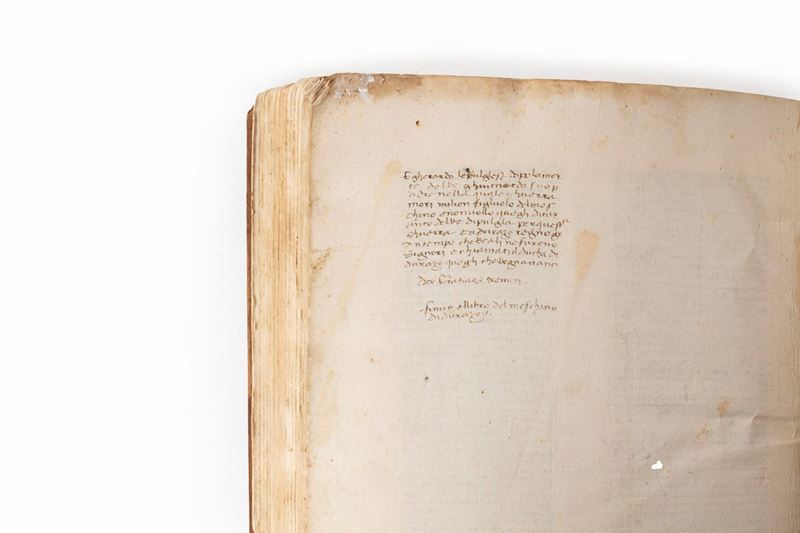 Egherardo lopuglese dopolamor
te delre ghuicciardo suo p
adre nella quale ghuerra
mori milion figluolo delmes
chino enonvollo quegli didur
anto delre dipuglia perquesta
ghuerra durazo regno gr
antempo chereali nefurono
signori e chiamati ducha di
durazo quegli che regnavano
deo Gratias Amen
finito ellibro del meschino
didurazo